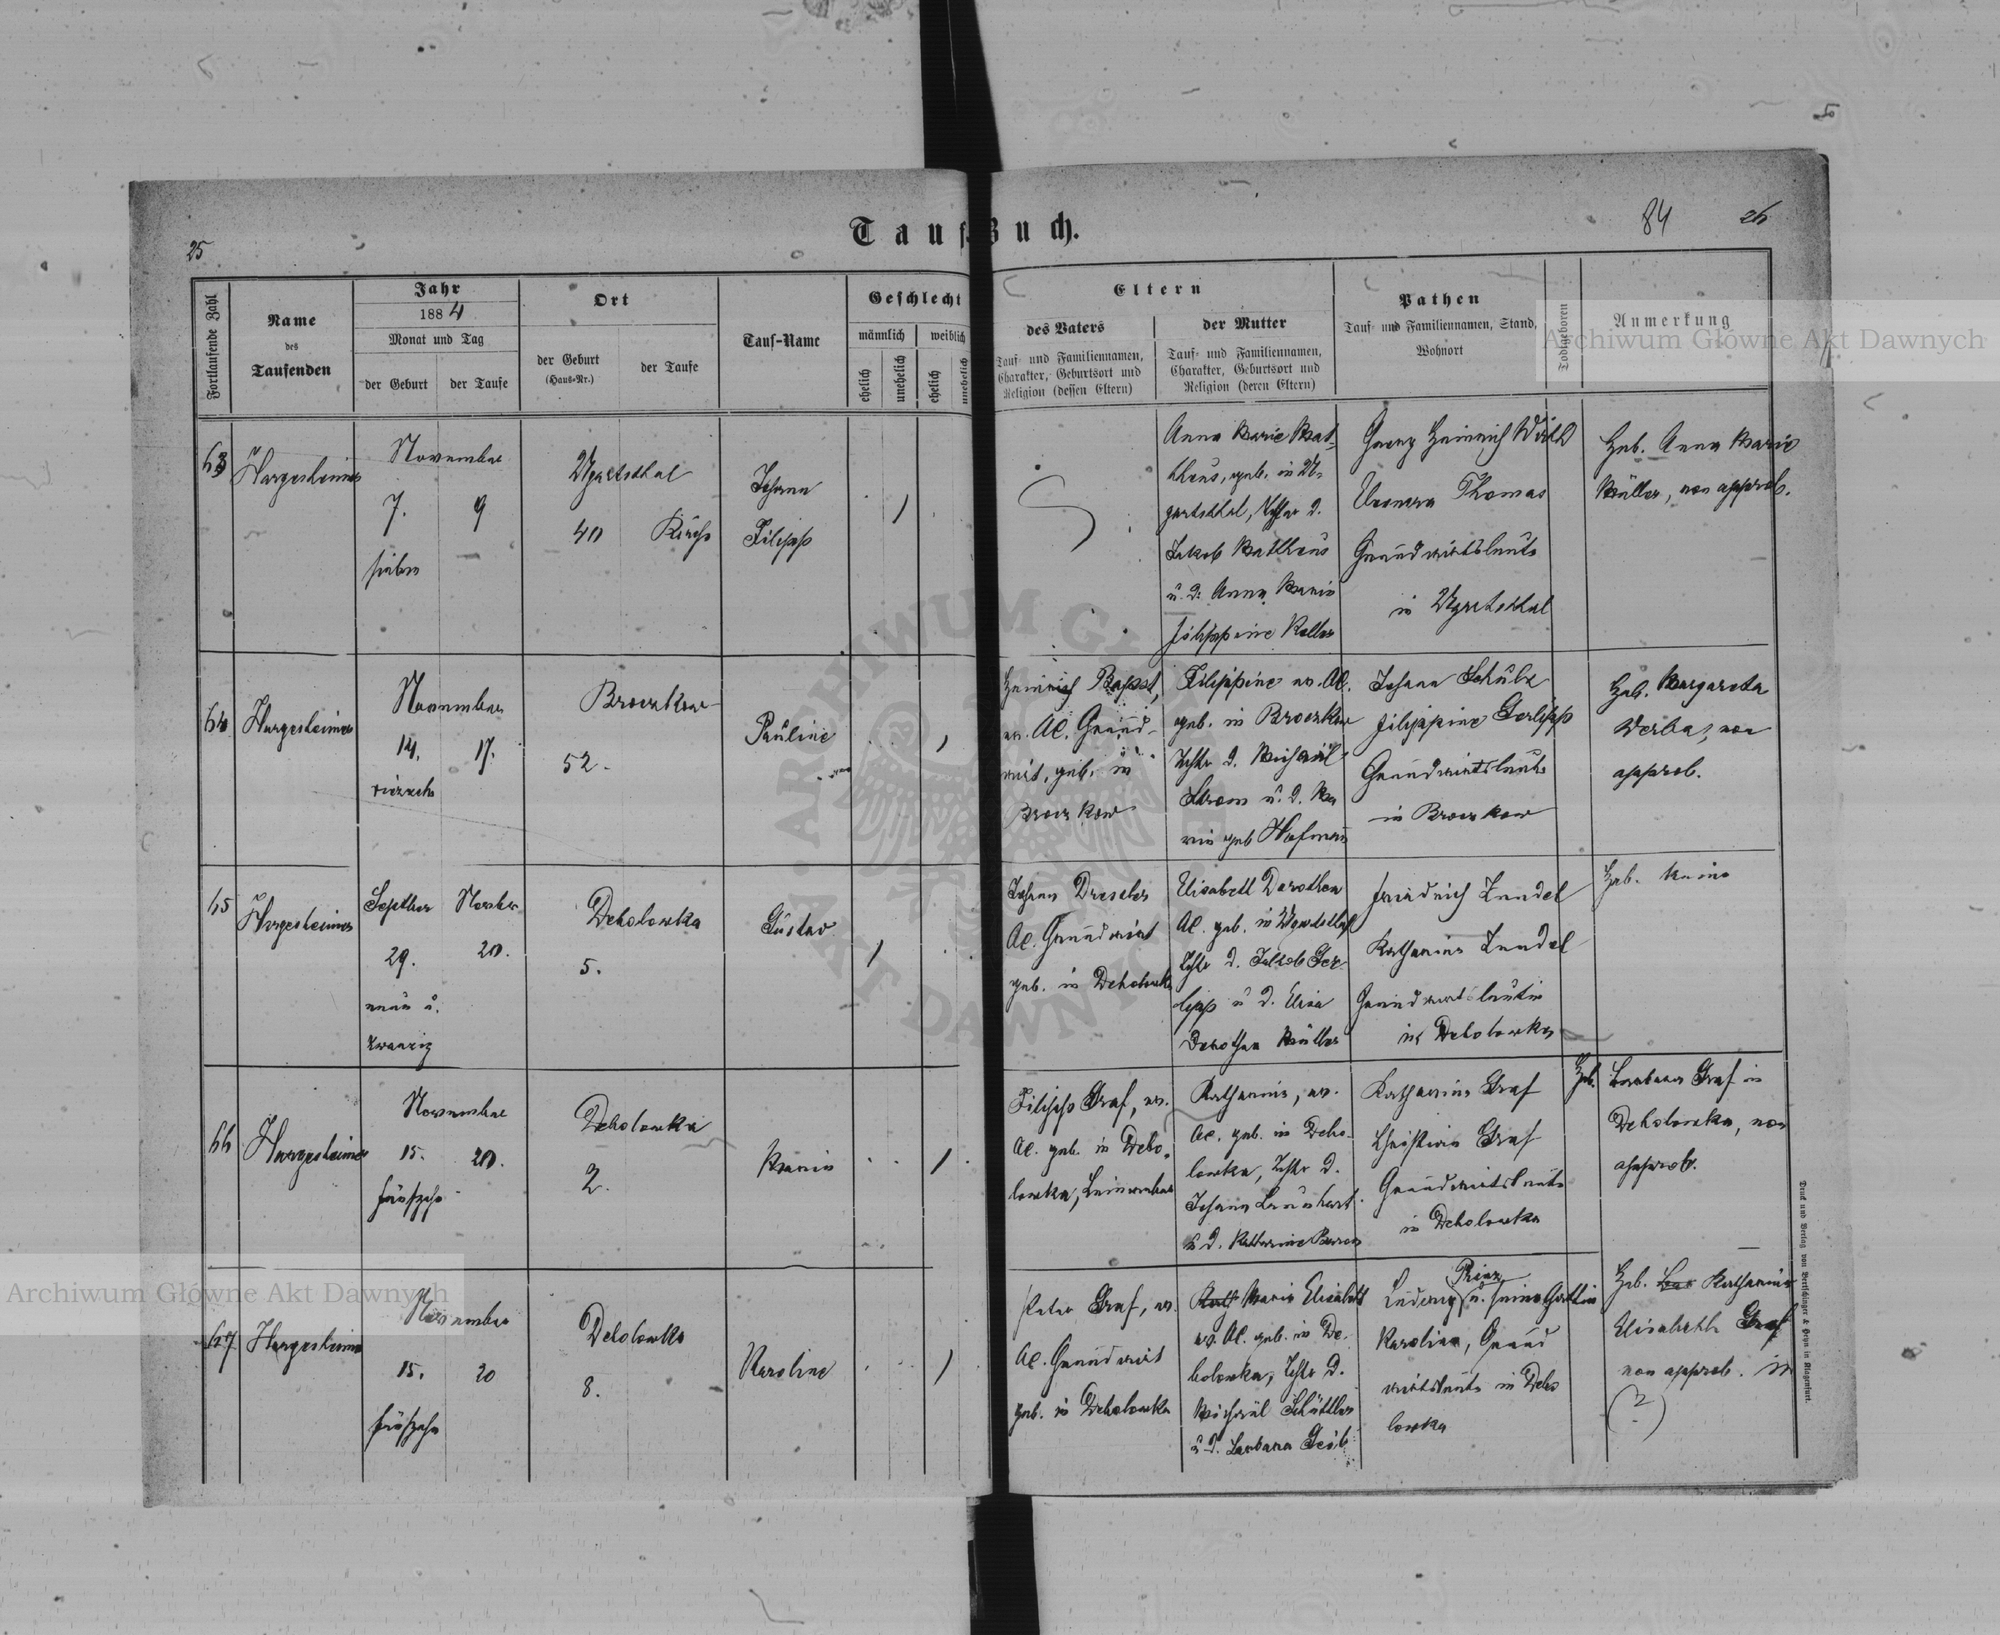 25
Tauf-Buch.
84
26
Fortlaufende Zahl
Name
des
Taufenden
Jahr
1884
Monat und Tag
der Geburt
der Taufe
Ort
der Geburt
(Haus-Nr.)
der Taufe
Tauf-Name
Geschlecht
männlich
weiblich
ehelich
unehelich
ehelich
unehelich
Eltern
des Vaters
Tauf- und Familiennamen,
Charakter, Geburtsort und
Religion (dessen Eltern)
der Mutter
Tauf- und Familiennamen,
Charakter, Geburtsort und
Religion (deren Eltern)
Pathen
Tauf- und Familiennamen, Stand,
Wohnort
Todtgeboren
Anmerkung
63
Hargesheimer
November
7.
9
sieben
Ugartsthal
40
Kirche
Johann
Filipp
Anna Marie Mat-
thäus, geb. in U-
gartsthal, Tchtr d.
Jakob Matthäus
u. d. Anna Maria
Filippine Koller
Georg Heinrich Wirth
Thomas
Grundwirtsleute
in Ugartsthal
Heb. Anna Marie
Müller, non approb.
64
Hargesheimer
November
14.
17.
vierzehn
Broczkow
52.
Pauline
Heinrich Bapst,
ev. AC. Grund-
wirt, geb. in
Broczkow
Filippine ev. AC.
geb. in Broczkow
Tchtr d. Michael
Strom u. d. Ma
rie geb Hofmann
Johann Schulz
Filippine Gerlipp
Grundwirtsleute
in Broczkow
Heb. Margareta
Werba, non
approb.
65
Hargesheimer
Septber
Novber
29.
20.
neun u.
zwanzig
Debolowka
5.
Gustav
Johann Drescher
AC. Grundwirt
geb. in Debolowka
Elisabeth Dorothea
AC. geb. in Ugartsthal
Tchtr d. Jakob Ger
lipp u d. Elisa
Dorothea Müller
Friedrich Zendel
Katharina Zendel
in Debolowka
Heb. keine
66
Hargesheimer
November
15.
20.
fünfzehn
Debolowka
2.
Maria
Filipp Graf, ev.
AC. geb. in Debo-
lowka,
Katharina, ev.
AC. geb. in Debo-
lowka, Tchtr d.
Johann Leonhart
u d. Katharine
Katharina Graf
Christian Graf
Grundwirtsleute
in Debolowka
Heb.
Barbara Graf in
Debolowka, non
approb.
67
Hargesheimer
November
15.
20
fünfzehn
Debolowka
8.
Karoline
Peter Graf, ev.
AC. Grundwirt
geb. in Debolowka
Maria Elisabeth
ev. AC. geb. in De-
bolowka, Tchtr d.
Michael Schüttler
u d. Barbara Geib
Prinz
Ludwig u. seine Gattin
Karolina, Grund
wirtsleute in Debo
lowka
Heb. Katharina
Elisabeth Graf
non approb. in
(?)
Druck und Verlag von Bertschinger & Heyn in Klagenfurt.
Archiwum Główne Akt Dawnych
Archiwum Główne Akt Dawnych